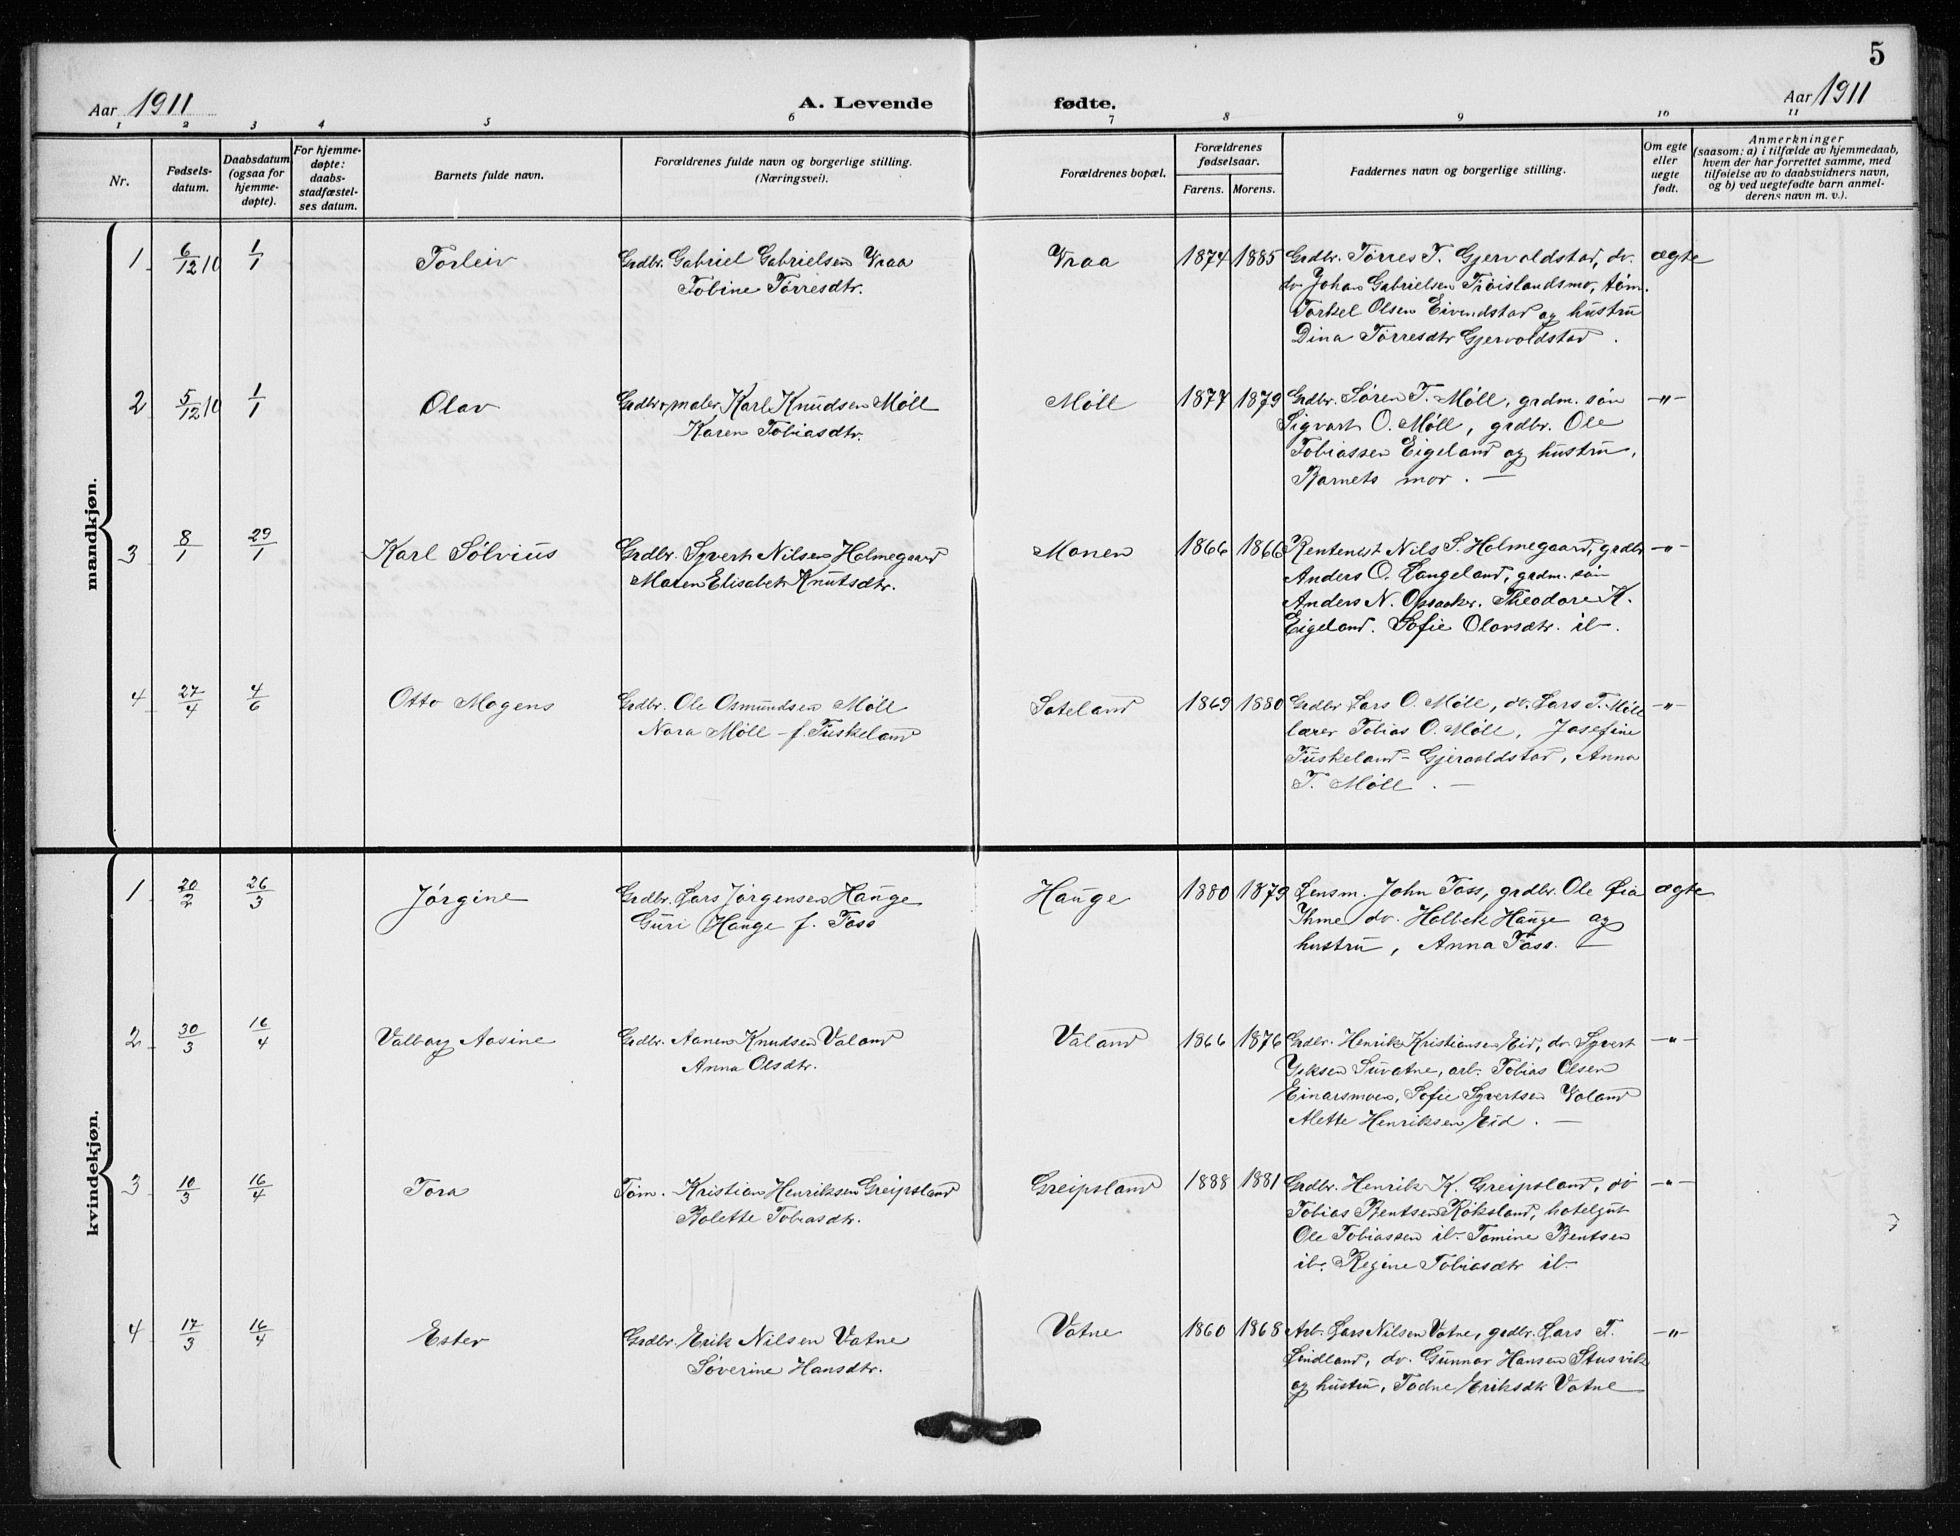 5
Aar 1911
A. Levende fødte.
Aar 1911
1 2 3 4 5 6 7 8 9 10 11
Nr.
Fødsels-
datum.
Daabsdatum
(ogsaa for
hjemme-
døpte).
For hjemme-
døpte:
daabs-
stadfæstel-
ses datum.
Barnets fulde navn.
Forældrenes fulde navn og borgerlige stilling.
(Næringsvei).
Forældrenes bopæl.
Forældrenes
fødselsaar.
Farens. Morens.
Faddernes navn og borgerlige stilling.
Om egte
eller
uegte
født.
Anmerkninger
(saasom: a) i tilfælde av hjemmedaab,
hvem der har forrettet samme, med
tilføielse av to daabsvidners navn,
og b) ved uegtefødte barn anmel-
derens navn m. v.).
mandkjøn.
1 6/12 10 1/1 Torleiv Grdbr. Gabriel Gabrielsen Vraa Vraa 1874 1885 Grdbr. Tørres T. Gjervoldstad, do. ægte
Tobine Tørresdtr. do Johan Gabrielsen Trøislandsmo, tøm.
Torkel Olsen Eivendstad og hustru
Dina Tørresdtr Gjervoldstad.
2 5/12 10 1/1 Olav Grdbr, maler Karl Knudsen Møll Møll 1877 1879 Grdbr. Søren T. Møll, grdm. søn -"-
Karen Tobiasdtr. Sigvart O. Møll, grdbr. Ole
Tobiassen Eigeland og hustru,
Barnets mor. —
3 8/1 29/1 Karl Sølvius Grdbr. Syvert Nilsen Holmegaard Monen 1866 1866 Rentenist Nils S. Holmegaard, grdbr -"-
Maren Elisabet Knutsdtr. Anders O. Langeland, grdm. søn
Anders N. Opsaker. Theodore K.
Eigeland. Sofie Olavsdtr. ib.
4 27/4 4/6 Otto Mogens Grdbr. Ole Osmundsen Møll Søteland 1869 1880 Grdbr Lars O. Møll, do. Lars T. Møll -"-
Nora Møll f. Tuskeland lærer Tobias O. Møll, Josefine
Tuskeland - Gjervoldstad, Anna
T. Møll. —
kvindekjøn.
1 20/2 26/3 Jørgine Grdbr. Lars Jørgensen Hauge Hauge 1880 1879 Lensm. John Foss, grdbr. Ole Øia ægte
Guri Hauge f. Foss Ihme do. Holbek Hauge og
hustru, Anna Foss. —
2 30/3 16/4 Valborg Aasine Grdbr. Aanen Knudsen Valand Valand 1866 1876 Grdbr. Henrik Kristiansen Eid, do Syvert -"-
Anna Olsdtr. Suvatne, arb. Tobias Olsen
Einarsmoen, Sofie Syvertsen Valand
Alette Henriksen Eid. —
3 10/3 16/4 Tora Tøm. Kristian Henriksen Greipsland Greipsland 1888 1881 Grdbr. Henrik K. Greipsland, do -"-
Bolette Tobiasdtr. Tobias Bentsen Røksland, hotelgut
Ole Tobiassen ib. Tomine Bentsen
ib. Regine Tobiasdtr ib.
4 17/3 16/4 Ester Grdbr. Erik Nilsen Vatne Vatne 1860 1868 Arb. Lars Nilsen Vatne, grdbr. Lars T. -"-
Søverine Hansdtr. Lindland, do. Gunnar Hansen Stusvik
og hustru, Todne Eriksdtr Vatne